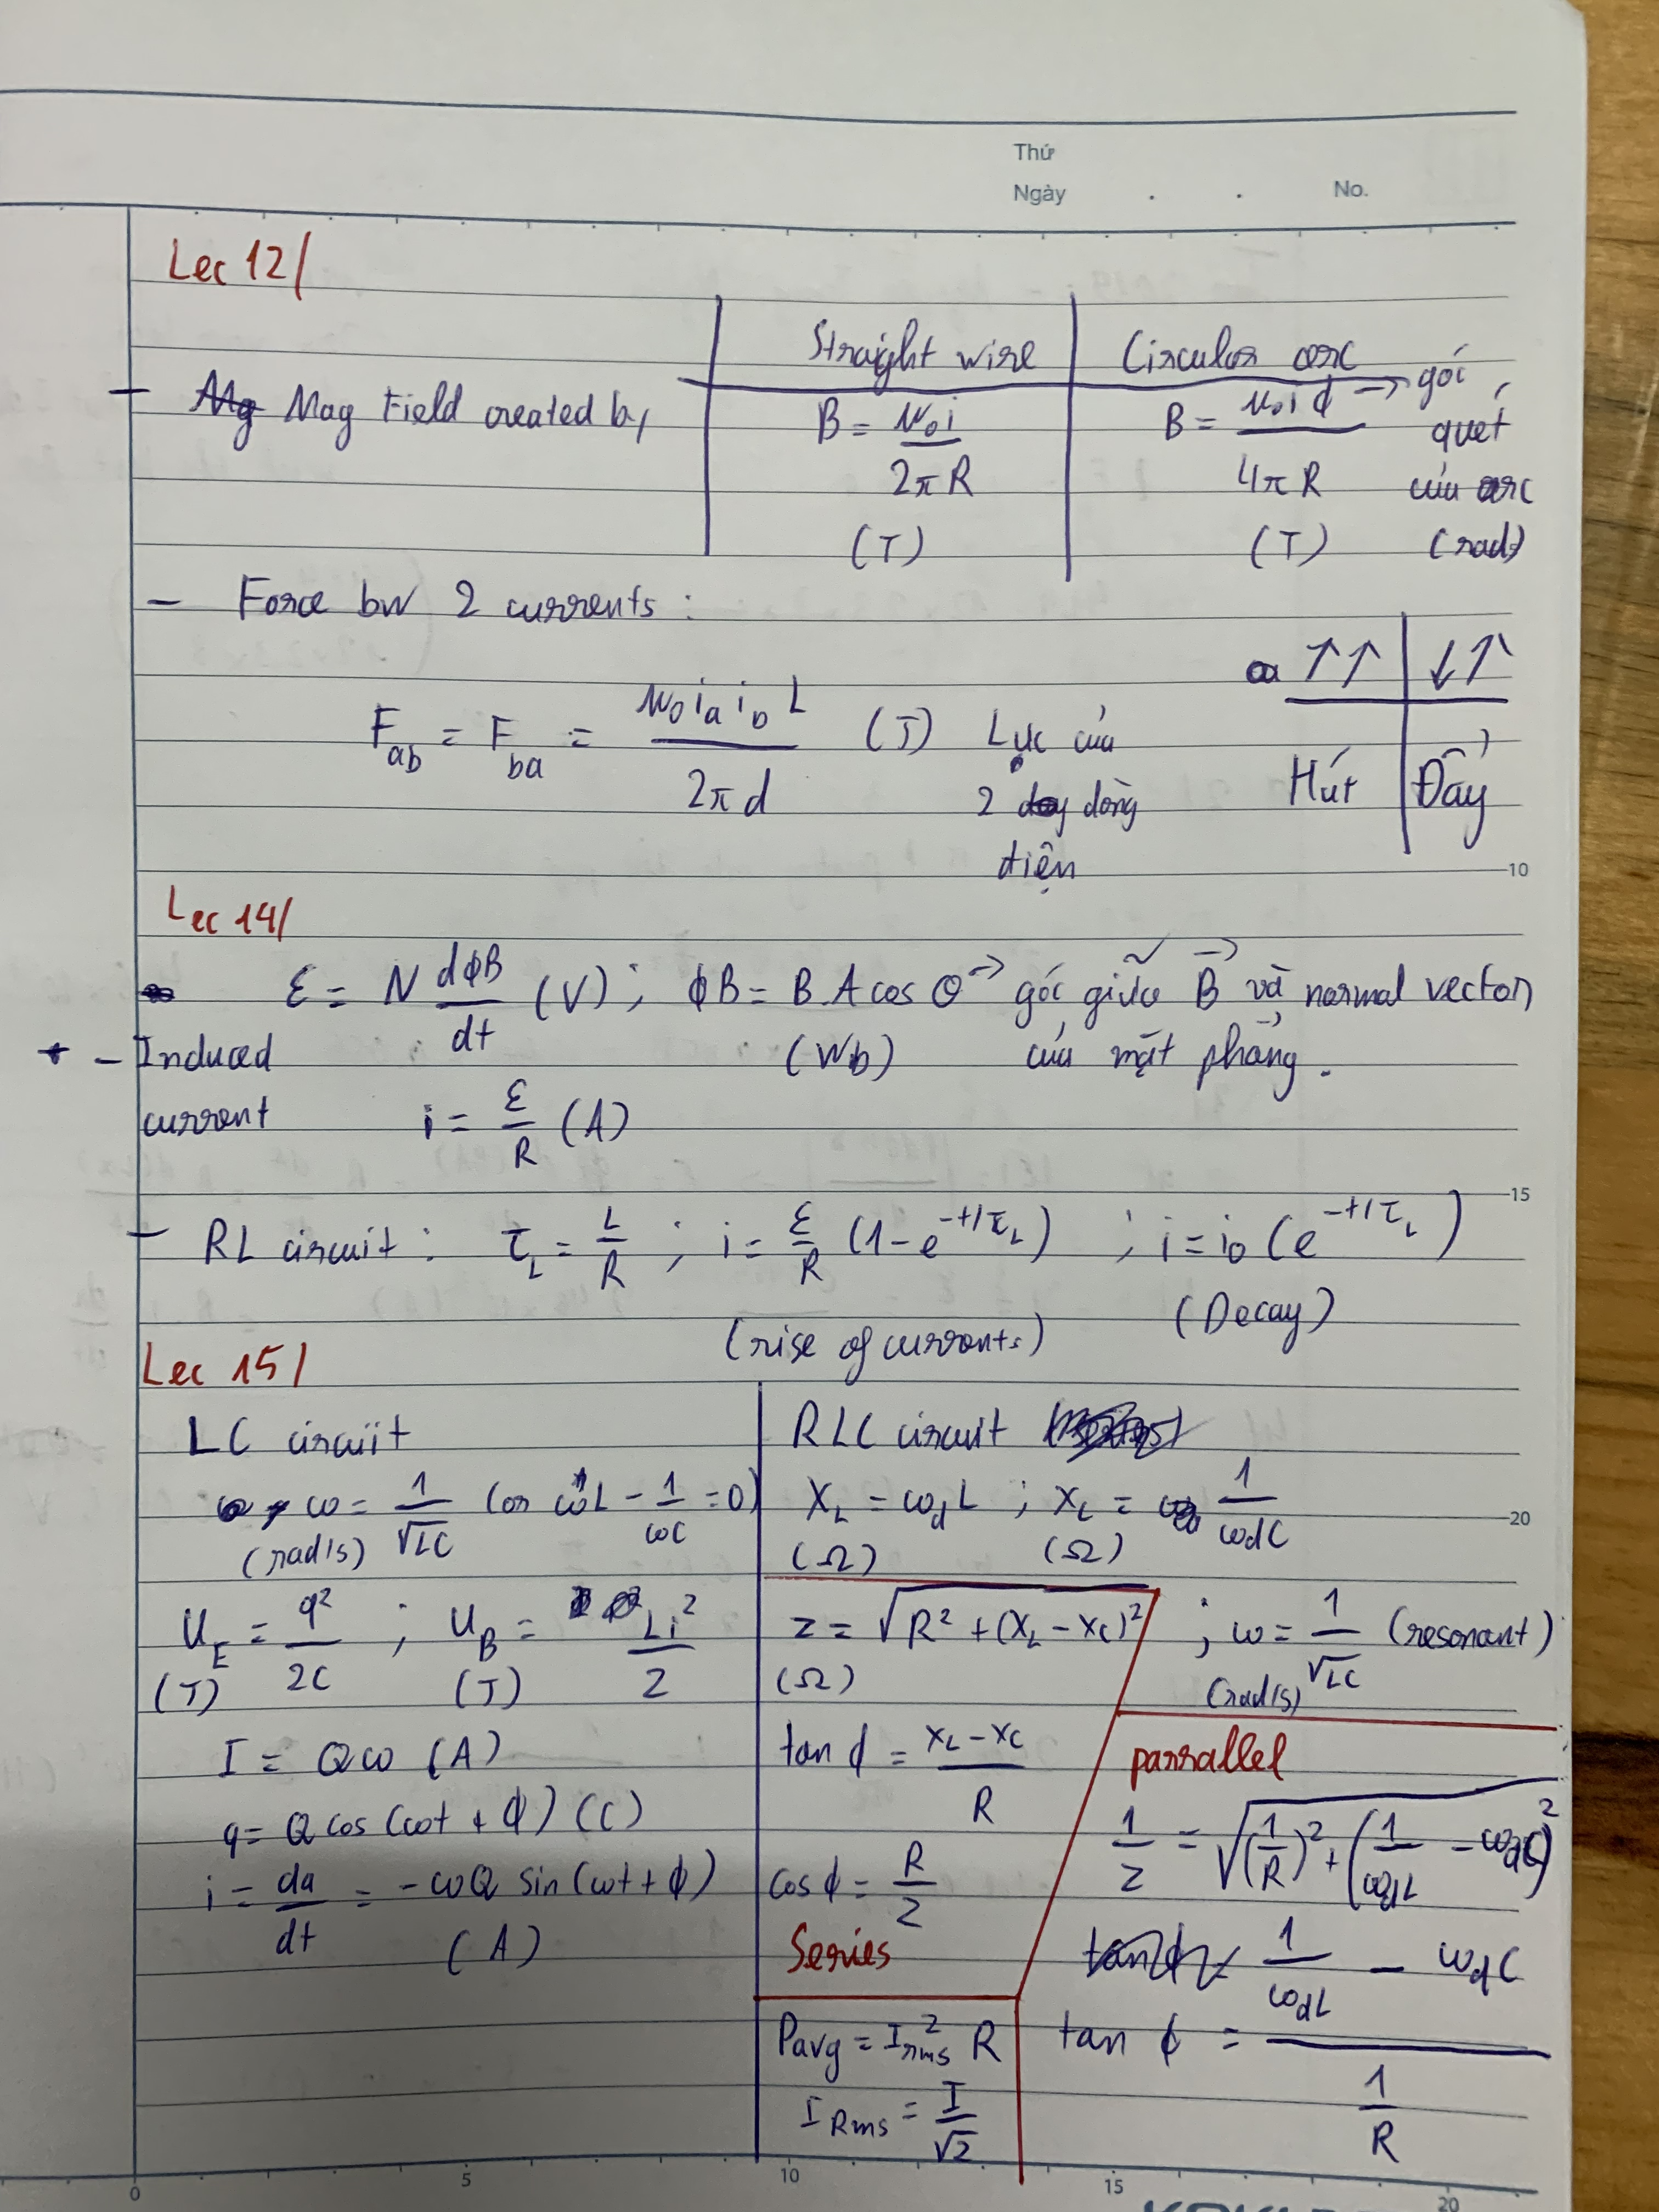 Thứ
Ngày . . No.
Lec 12/
Straight wire | Circular arc
- Mag Field created by
B = μ₀i / 2πR (T)
B = μ₀iϕ / 4πR (T) → góc quét của arc (rad)
- Force bw 2 currents :
F_ab = F_ba = μ₀ i_a i_b L / 2πd (J) Lực của
2 dòng
điện
↑↑ | ↓↑
Hút | Đẩy
10
Lec 14/
ε = N dϕB/dt (V) ; ϕB = B.A cos θ → góc giữa B⃗ và normal vector
(Wb) của mặt phẳng.
+ - Induced
current i = ε/R (A)
15
- RL circuit : τ_L = L/R ; i = ε/R (1 - e^(-t/τ_L)) ; i = i₀ (e^(-t/τ_L))
(rise of currents) (Decay)
Lec 15/
LC circuit
ω = 1/√LC (or ωL - 1/ωC = 0)
(rad/s)
U_E = q²/2C ; U_B = Li²/2
(J) (J)
I = Qω (A)
q = Q cos(ωt + ϕ) (C)
i = dq/dt = -ωQ sin(ωt + ϕ)
(A)
RLC circuit
X_L = ω_d L ; X_C = 1/ω_d C
20
(Ω) (Ω)
Z = √(R² + (X_L - X_C)²) ; ω = 1/√LC (resonant)
(Ω) (rad/s)
tan ϕ = (X_L - X_C)/R
cos ϕ = R/Z
Series
parrallel
1/Z = √((1/R)² + (1/ω_d L - ω_d C)²)
tan ϕ = (1/ω_d L - ω_d C) / (1/R)
Pavg = I²rms R
I Rms = I/√2
0 5 10 15 20